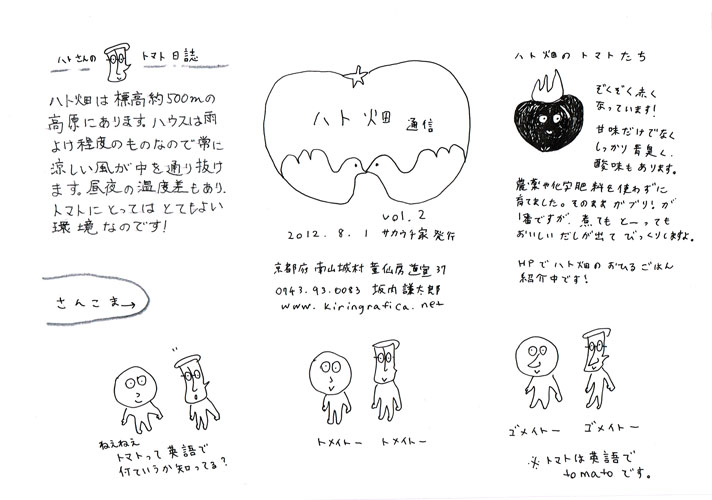 ハトさんの トマト日誌
ハト畑は標高約500mの
高原にあります。ハウスは雨
よけ程度のものなので常に
涼しい風が中を通り抜け
ます。昼夜の温度差もあり、
トマトにとってはとてもよい
環境なのです!
ハト畑 通信
vol.2
2012.8.1 サカウチ家発行
京都府南山城村童仙房 37
0943.93.0083 坂内謙太郎
www.kiringrafica.net
ハト畑のトマトたち
ぞくぞく赤く
なっています!
甘味だけでなく
しっかり青臭く、
酸味もあります。
農薬や化学肥料を使わずに
育てました。そのままガブリ!が
1番ですが、煮てもとーっても
おいしいだしが出てびっくりしますよ。
HPでハト畑のおひるごはん
紹介中です!
さんこま→
ねぇねぇ
トマトって英語で
何ていうか知ってる?
トメイトー トメイトー
ゴメイトー ゴメイトー
※トマトは英語で
tomatoです。